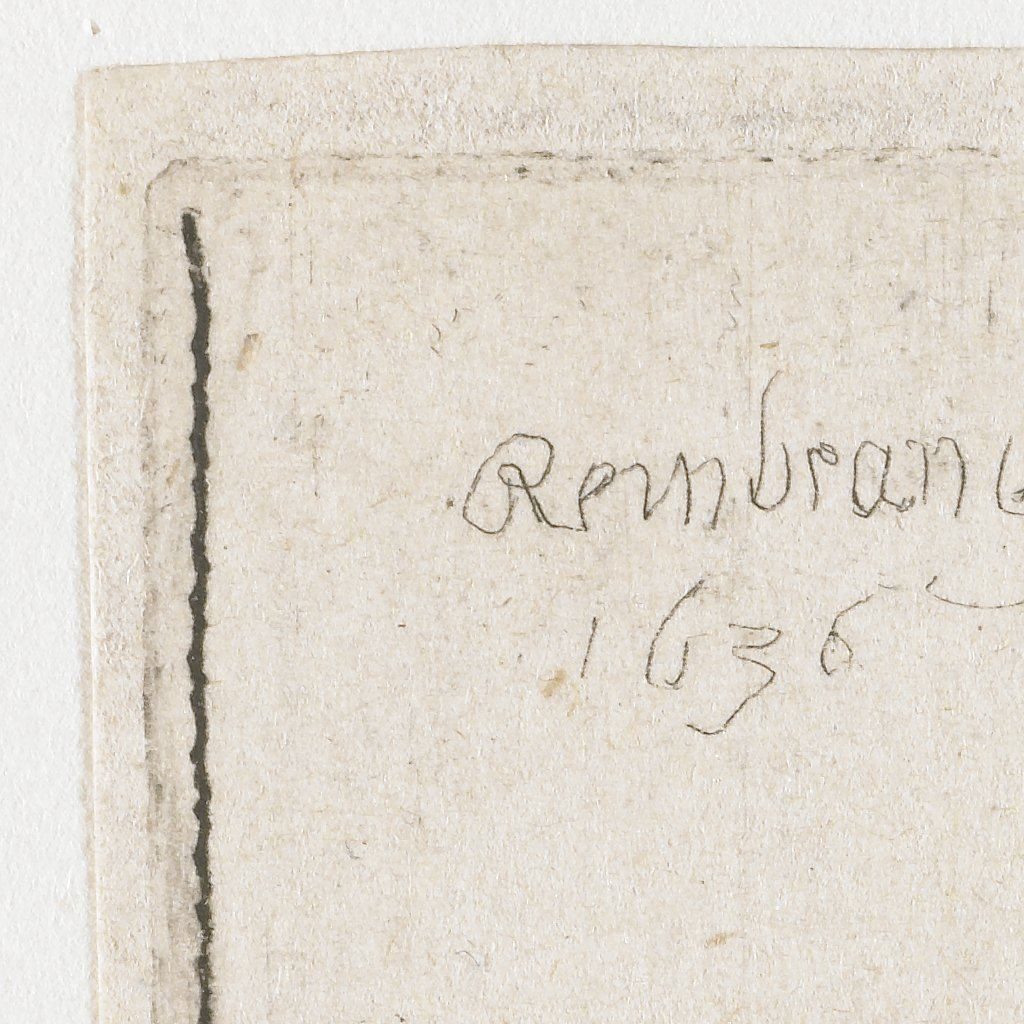 Rembran
1636